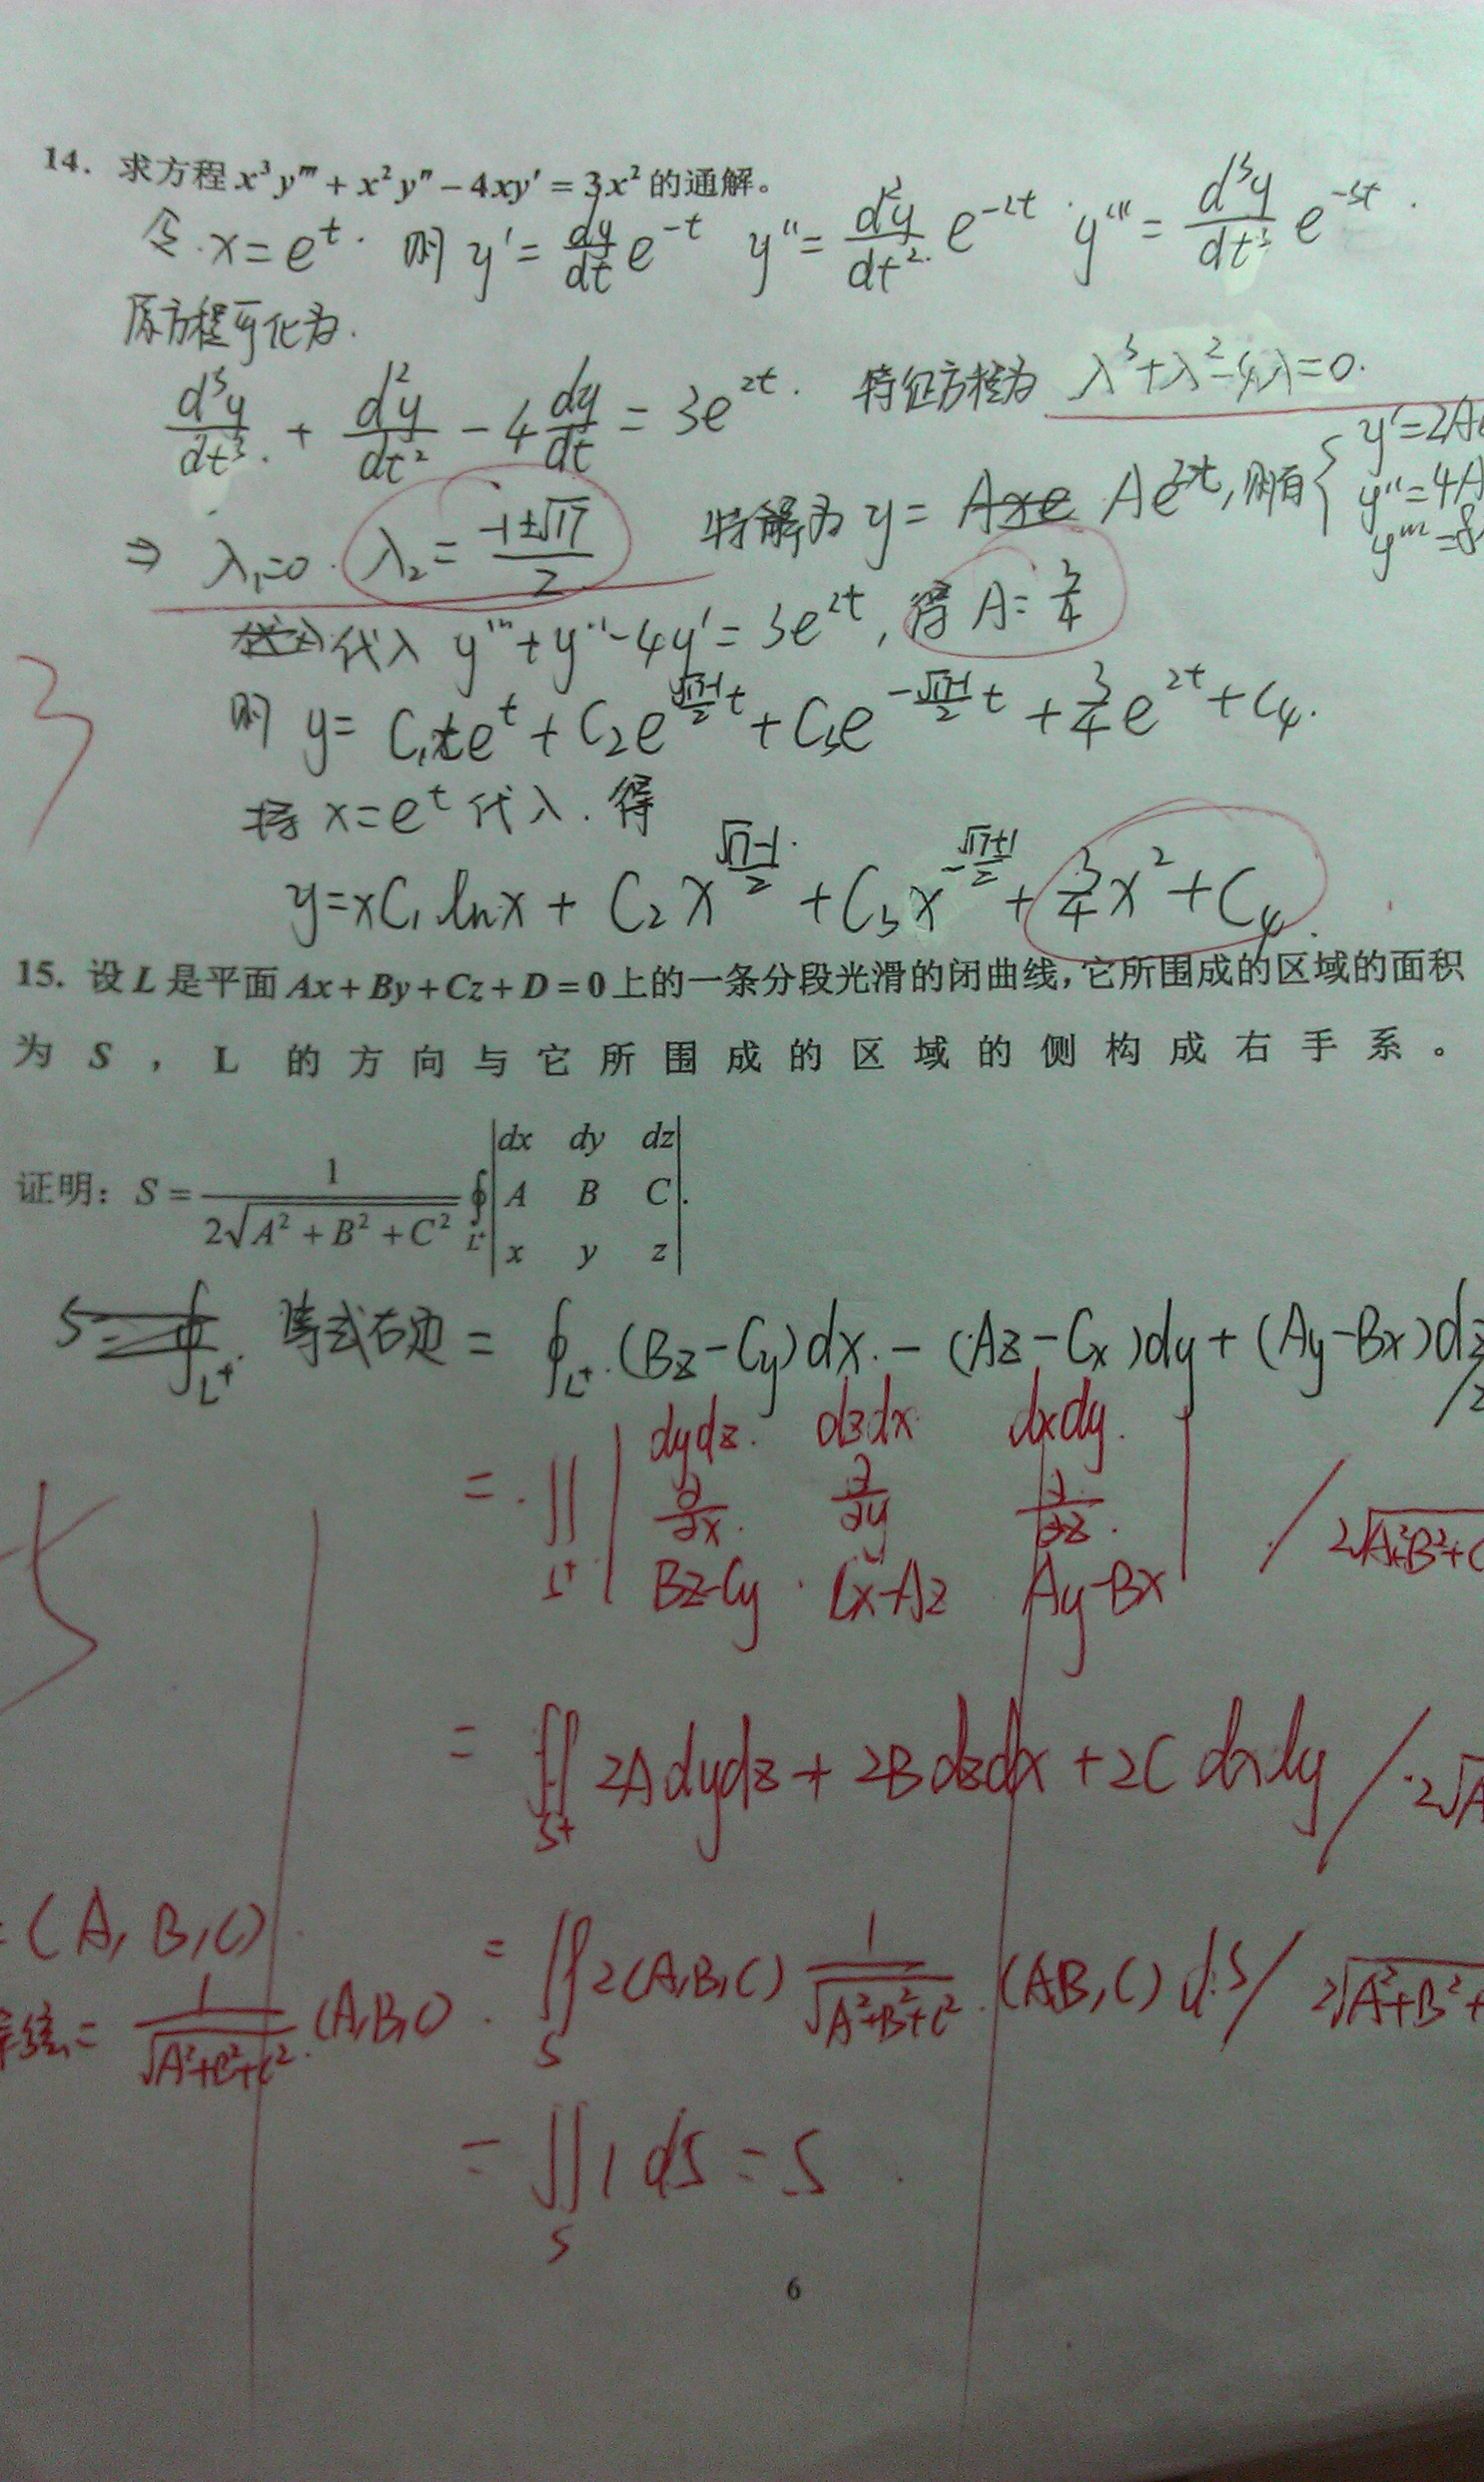 14. 求方程 x³y''' + x²y'' − 4xy' = 3x² 的通解。
令 x = e^t. 则 y' = dy/dt e^{-t} y'' = d²y/dt² e^{-2t} y''' = d³y/dt³ e^{-3t}.
原方程可化为.
d³y/dt³ + d²y/dt² − 4 dy/dt = 3e^{2t}. 特征方程为 λ³+λ²−4λ=0.
⇒ λ₁=0. λ₂ = (−1±√17)/2 特解为 y = Ae^{2t}, 则有 { y'=2A
y''=4A
y'''=8
代入 y'''+y''−4y' = 3e^{2t}, 得 A = 3/4
3
则 y = C₁te^t + C₂e^{(√17−1)/2 t} + C₃e^{−(√17+1)/2 t} + 3/4 e^{2t} + C₄.
将 x = e^t 代入. 得
y = xC₁ lnx + C₂x^{(√17−1)/2} + C₃x^{−(√17+1)/2} + 3/4 x² + C₄.
15. 设 L 是平面 Ax + By + Cz + D = 0 上的一条分段光滑的闭曲线，它所围成的区域的面积
为 S ， L 的方向与它所围成的区域的侧构成右手系。
证明： S = 1/(2√(A² + B² + C²)) ∮_{L⁺} |dx dy dz|
|A B C|.
|x y z|
等式右边 = ∮_{L⁺} (Bz−Cy)dx − (Az−Cx)dy + (Ay−Bx)dz / 2
= ∬ | dydz dzdx dxdy |
| ∂/∂x ∂/∂y ∂/∂z | / 2√A²+B²+C
| Bz−Cy Cx−Az Ay−Bx |
= ∬_{S⁺} 2A dydz + 2B dzdx + 2C dxdy / 2√A
= (A, B, C)
= 1/√(A²+B²+C²) (A,B,C) = ∬_S 2(A,B,C) 1/√(A²+B²+C²) (A,B,C) dS / 2√A²+B²+
= ∬_S 1 dS = S
6